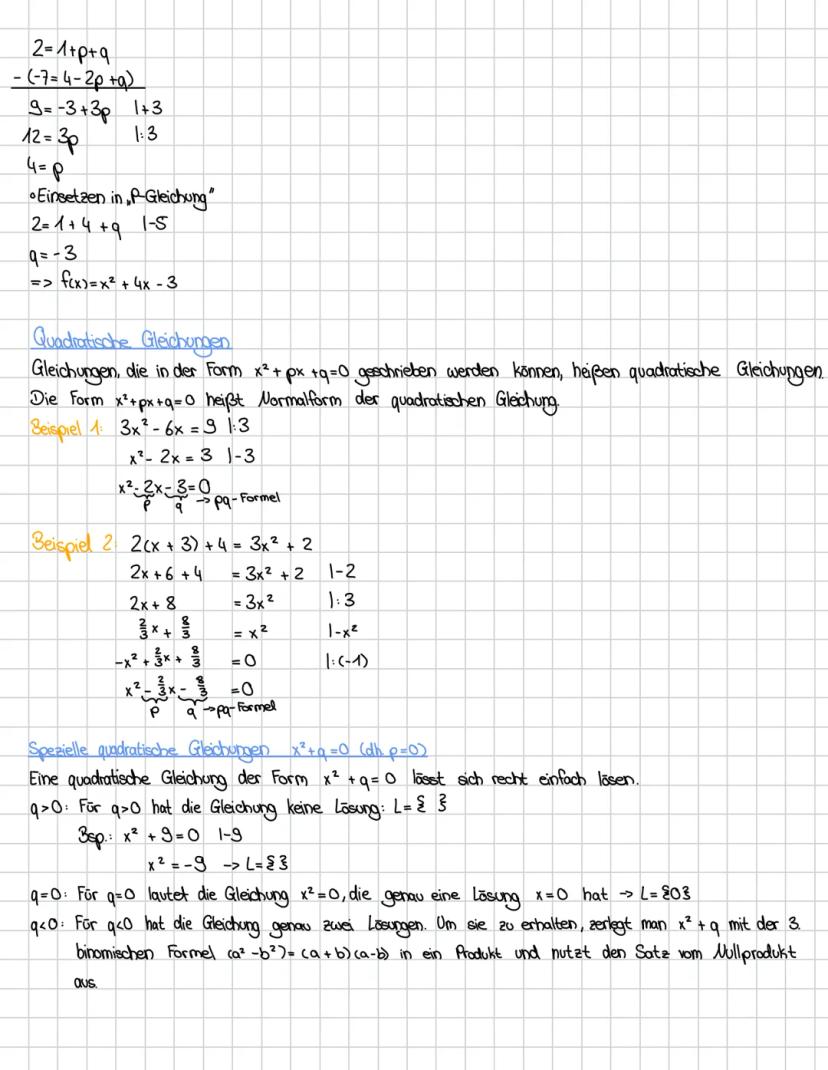 2=1+p+q
-(-7=4-2p+q)
9=-3+3p |+3
12=3p |:3
4=p
∘Einsetzen in „P-Gleichung"
2=1+4+q |-5
q=-3
=> f(x)=x²+4x-3
Quadratische Gleichungen
Gleichungen, die in der Form x²+px+q=0 geschrieben werden können, heißen quadratische Gleichungen.
Die Form x²+px+q=0 heißt Normalform der quadratischen Gleichung.
Beispiel 1: 3x²-6x=9 |:3
x²-2x=3 |-3
x²-2x-3=0
p q → pq-Formel
Beispiel 2: 2(x+3)+4=3x²+2
2x+6+4 =3x²+2 |-2
2x+8 =3x² |:3
2/3x+8/3 =x² |-x²
-x²+2/3x+8/3 =0 |:(-1)
x²-2/3x-8/3 =0
p q → pq-Formel
Spezielle quadratische Gleichungen x²+q=0 (dh. p=0)
Eine quadratische Gleichung der Form x²+q=0 lässt sich recht einfach lösen.
q>0: Für q>0 hat die Gleichung keine Lösung: L={ }
Bsp.: x²+9=0 |-9
x²=-9 -> L={}
q=0: Für q=0 lautet die Gleichung x²=0, die genau eine Lösung x=0 hat → L={0}
q<0: Für q<0 hat die Gleichung genau zwei Lösungen. Um sie zu erhalten, zerlegt man x²+q mit der 3.
binomischen Formel (a²-b²)=(a+b)(a-b) in ein Produkt und nutzt den Satz vom Nullprodukt
aus.